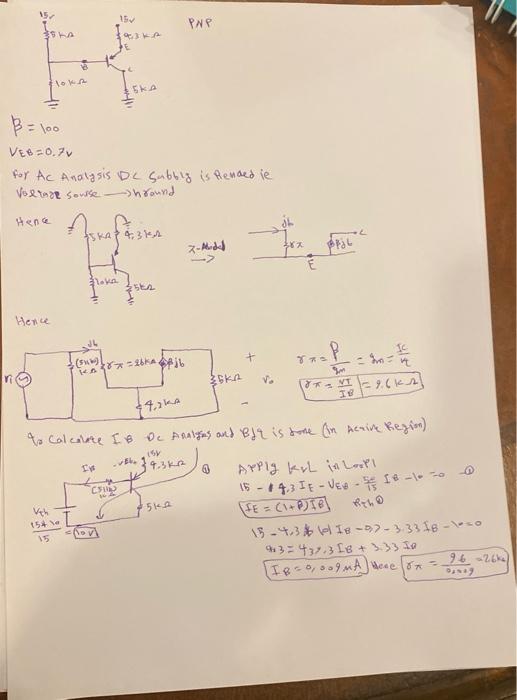 15v 15v PNP
5kΩ 4.3kΩ
E
B
C
10kΩ 5kΩ
β = 100
VEB = 0.7v
For Ac Analysis DC Subbly is
Voltage sourse → hround
Hence
5kΩ 4.3kΩ π-Model → ib rπ βib C
E
10kΩ 5kΩ
Hence
ib
(5||10) kΩ rπ = 26kΩ βib 5kΩ + Vo -
Vi
4.3kΩ
rπ = β/gm = gm = Ic/
rπ = VT/IB = 2.6kΩ
To Calculate IB Dc Analysis and is done (in Active Region)
IB 15v 4.3kΩ ①
(5||10)
5kΩ
Vth
15*10/15 = 10V
Apply kvL in Loop1
15 - 4.3 IE - VEB - 50/15 IB - 10 = 0 - ①
IE = (1+β)IB Rth
15 - 4.3 101 IB - 0.7 - 3.33 IB - 10 = 0
4.3 = 437.3 IB + 3.33 IB
IB = 0.009 mA Here rπ = 26/0.009 = 26k